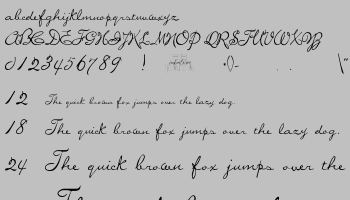 abcdefghijklmnopqrstuvwxyz
ABCDEFGHIJKLMNOP QRSTUVWXYZ
0123456789 ! •()- . . \"
12 The quick brown fox jumps over the lazy dog.
18 The quick brown fox jumps over the lazy dog.
24 The quick brown fox jumps over the
The quick brown